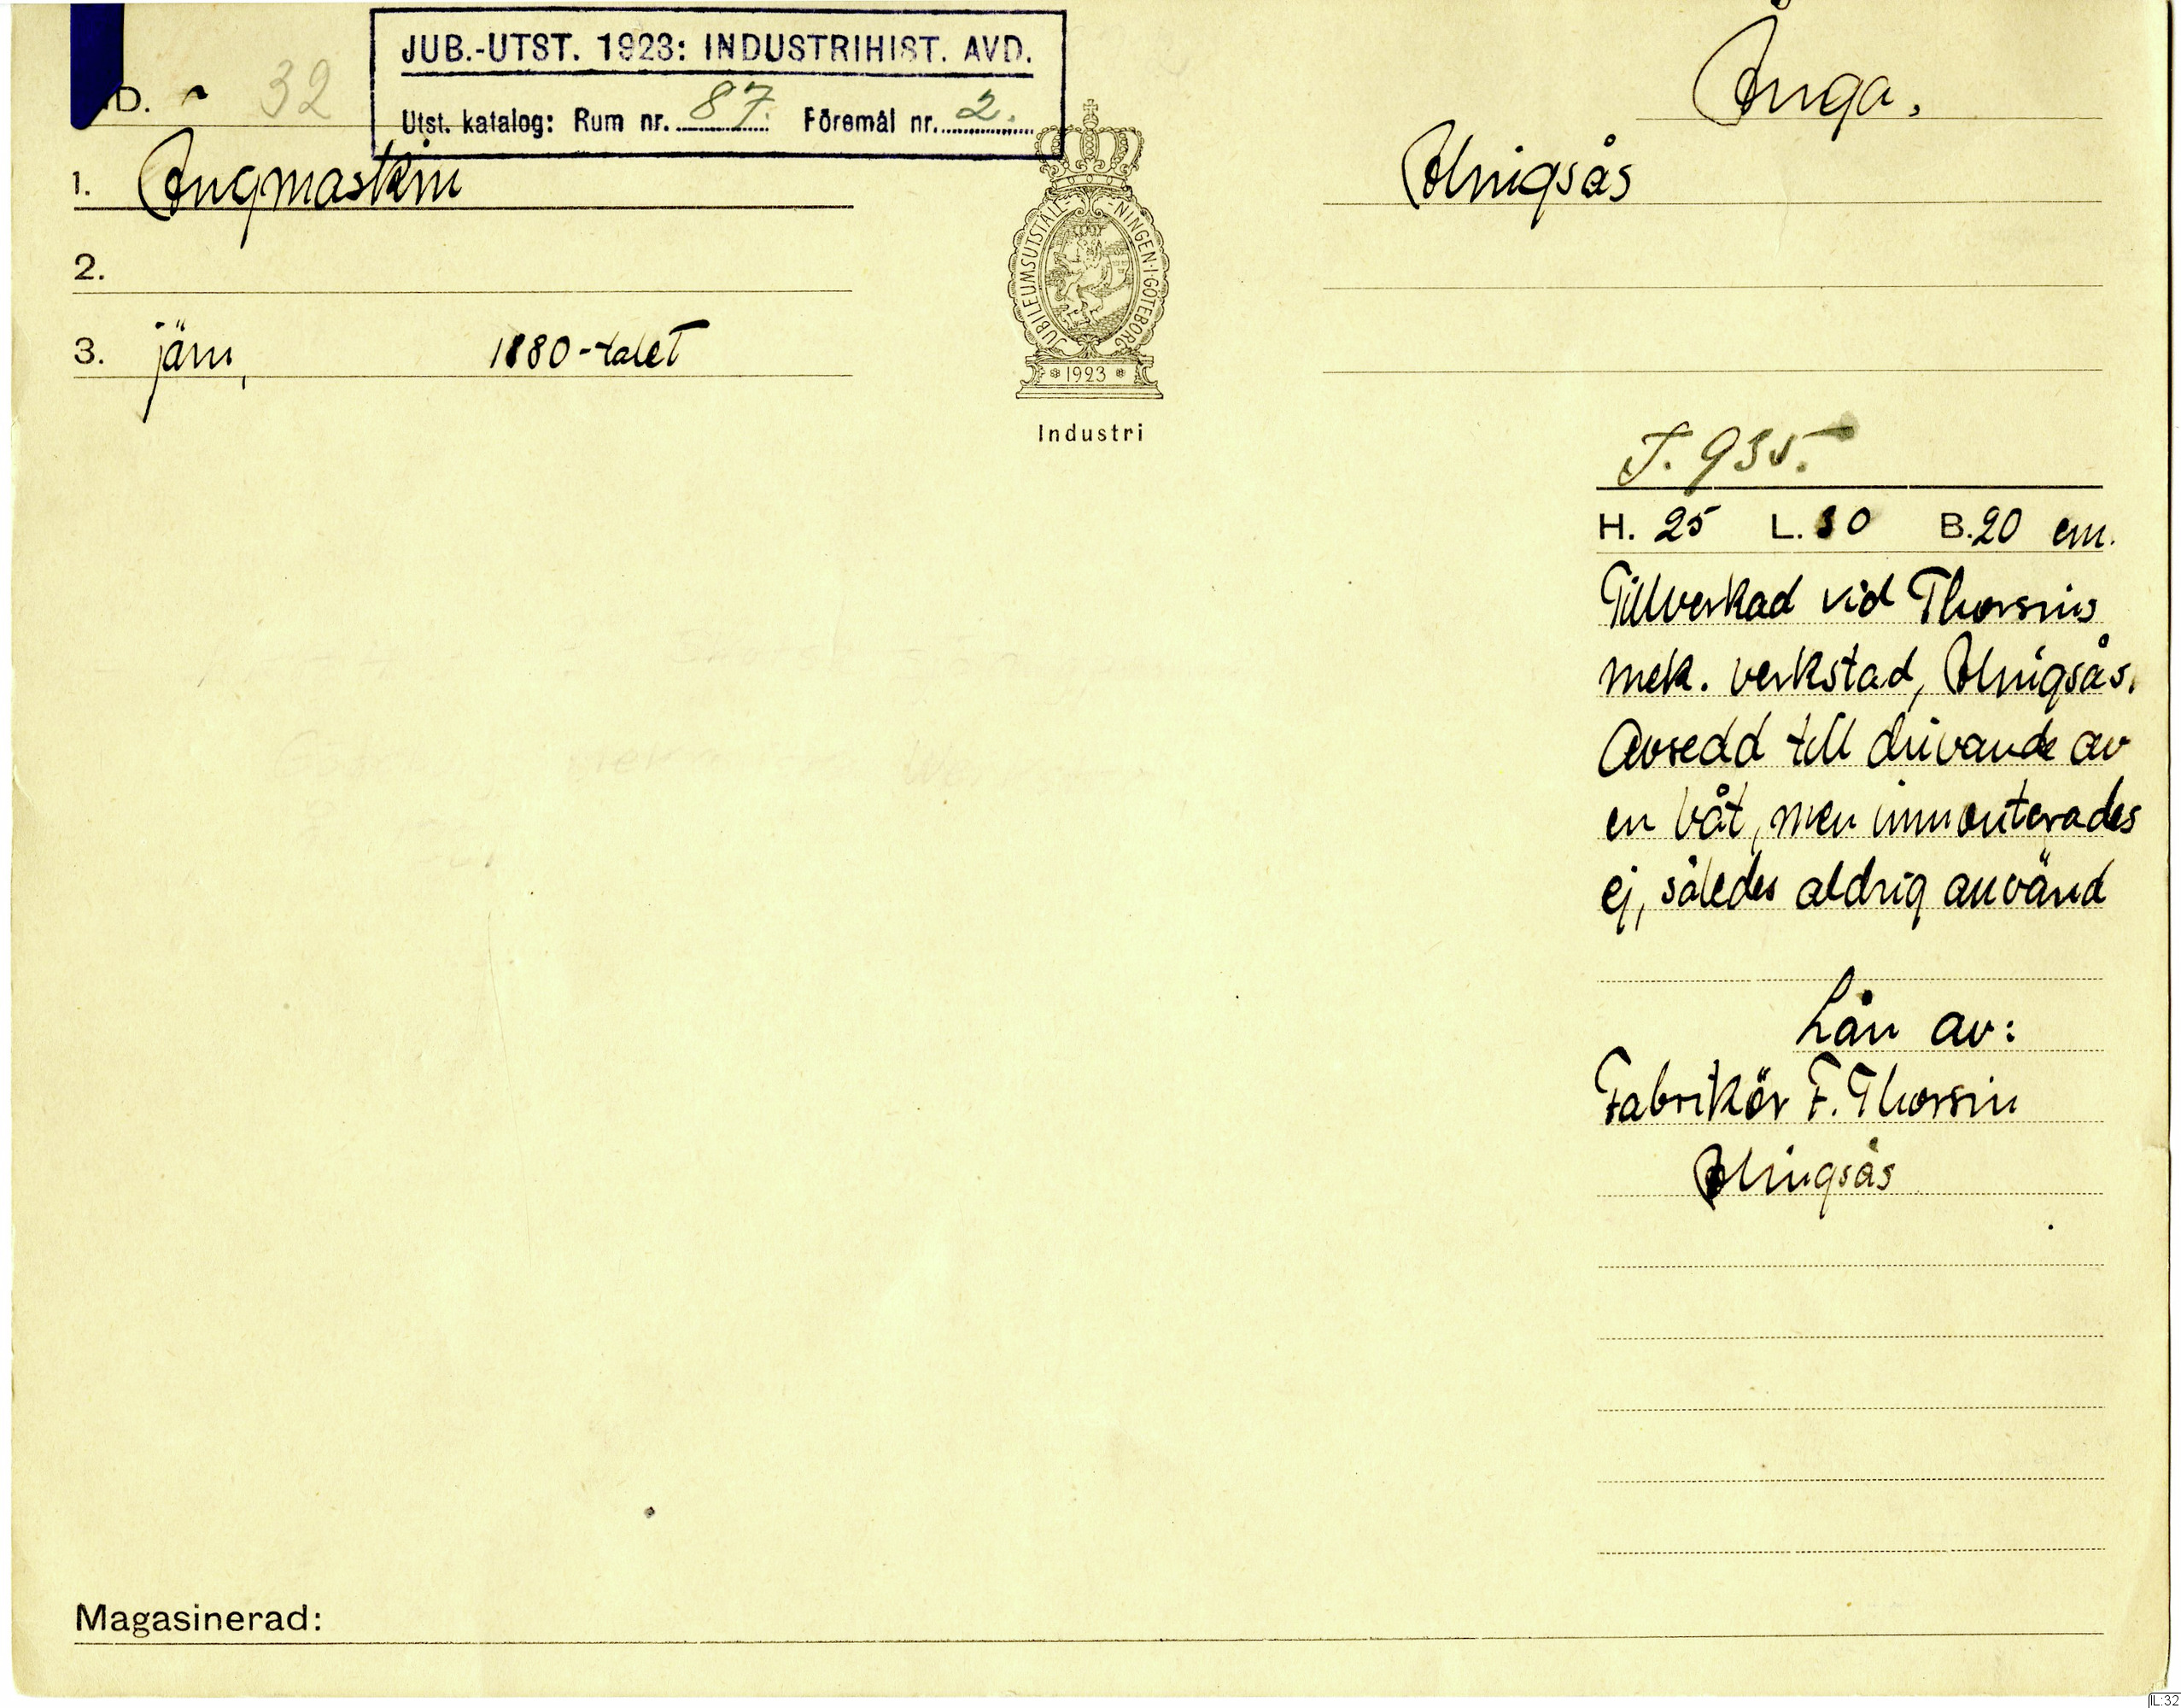 JUB.-UTST. 1923: INDUSTRIHIST. AVD.
Utst. katalog: Rum nr. 87. Föremål nr. 2.
D. 32
Ånga.
1. Ångmaskin
Alingsås
2.
3. järn, 1880-talet
JUBILEUMSUTSTÄLL-NINGEN·I·GÖTEBORG
1923
Industri
J. 935.
H. 25 L. 30 B. 20 cm.
Tillverkad vid Thorsins
mek. verkstad, Alingsås.
Avsedd till drivande av
en båt, men inmonterades
ej, således aldrig använd
Lån av:
Fabrikör F. Thorsin
Alingsås
Magasinerad:
IL:32